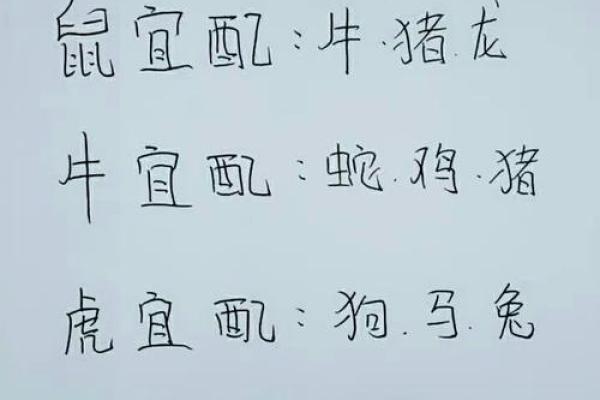 鼠宜配:牛.猪.龙
牛宜配:蛇.鸡.猪
虎宜配:狗.马.兔